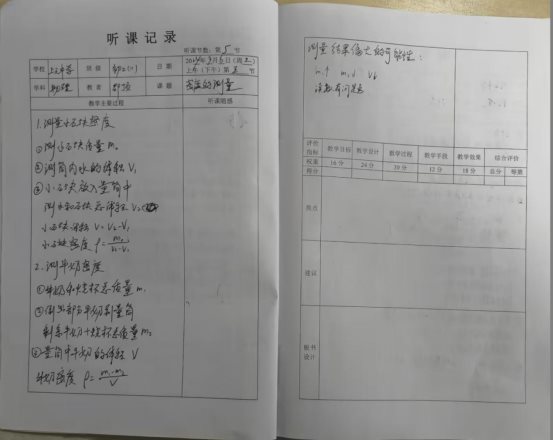 听课记录
听课节数：第 5 节
学校
班级
日期
上午（下午）第 节
学科 物理 教者 课题 密度的测量
教学主要过程 听课随感
1. 测量小石块密度
① 测小石块质量 m。
② 测筒内水的体积 V₁
③ 小石块放入量筒中
测水和石块总体积 V₂
小石块体积 V=V₂-V₁
小石块密度 ρ=m/(V₂-V₁)
2. 测牛奶密度
① 牛奶和烧杯总质量 m₁
② 倒出部分牛奶到量筒
剩余牛奶+烧杯总质量 m₂
③ 量筒中牛奶的体积 V
牛奶密度 ρ=(m₁-m₂)/V
测量结果偏大的可能性：
m↑ m₂↓ V↓
评价指标 教学目标 教学设计 教学过程 教学手段 教学效果 综合评价
权重 16分 24分 30分 12分 18分 总分 等第
得分
优点
建议
板书设计